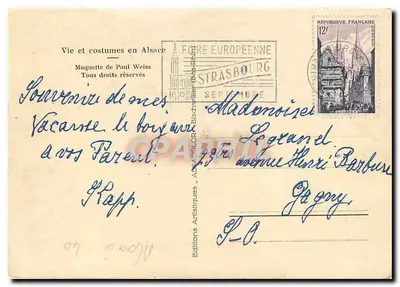 Vie et costumes en Alsace
Maquette de Paul Weiss
Tous droits réservés
FOIRE EUROPÉENNE
STRASBOURG
SEPTEMBRE
RÉPUBLIQUE FRANÇAISE
12F
Souvenir de mes
Vacanse
a vos Parent
Kapp.
Mademoiselle
Legrand
avenue Henri Barbuse
Gagny
S-O.
Editions Artistiques